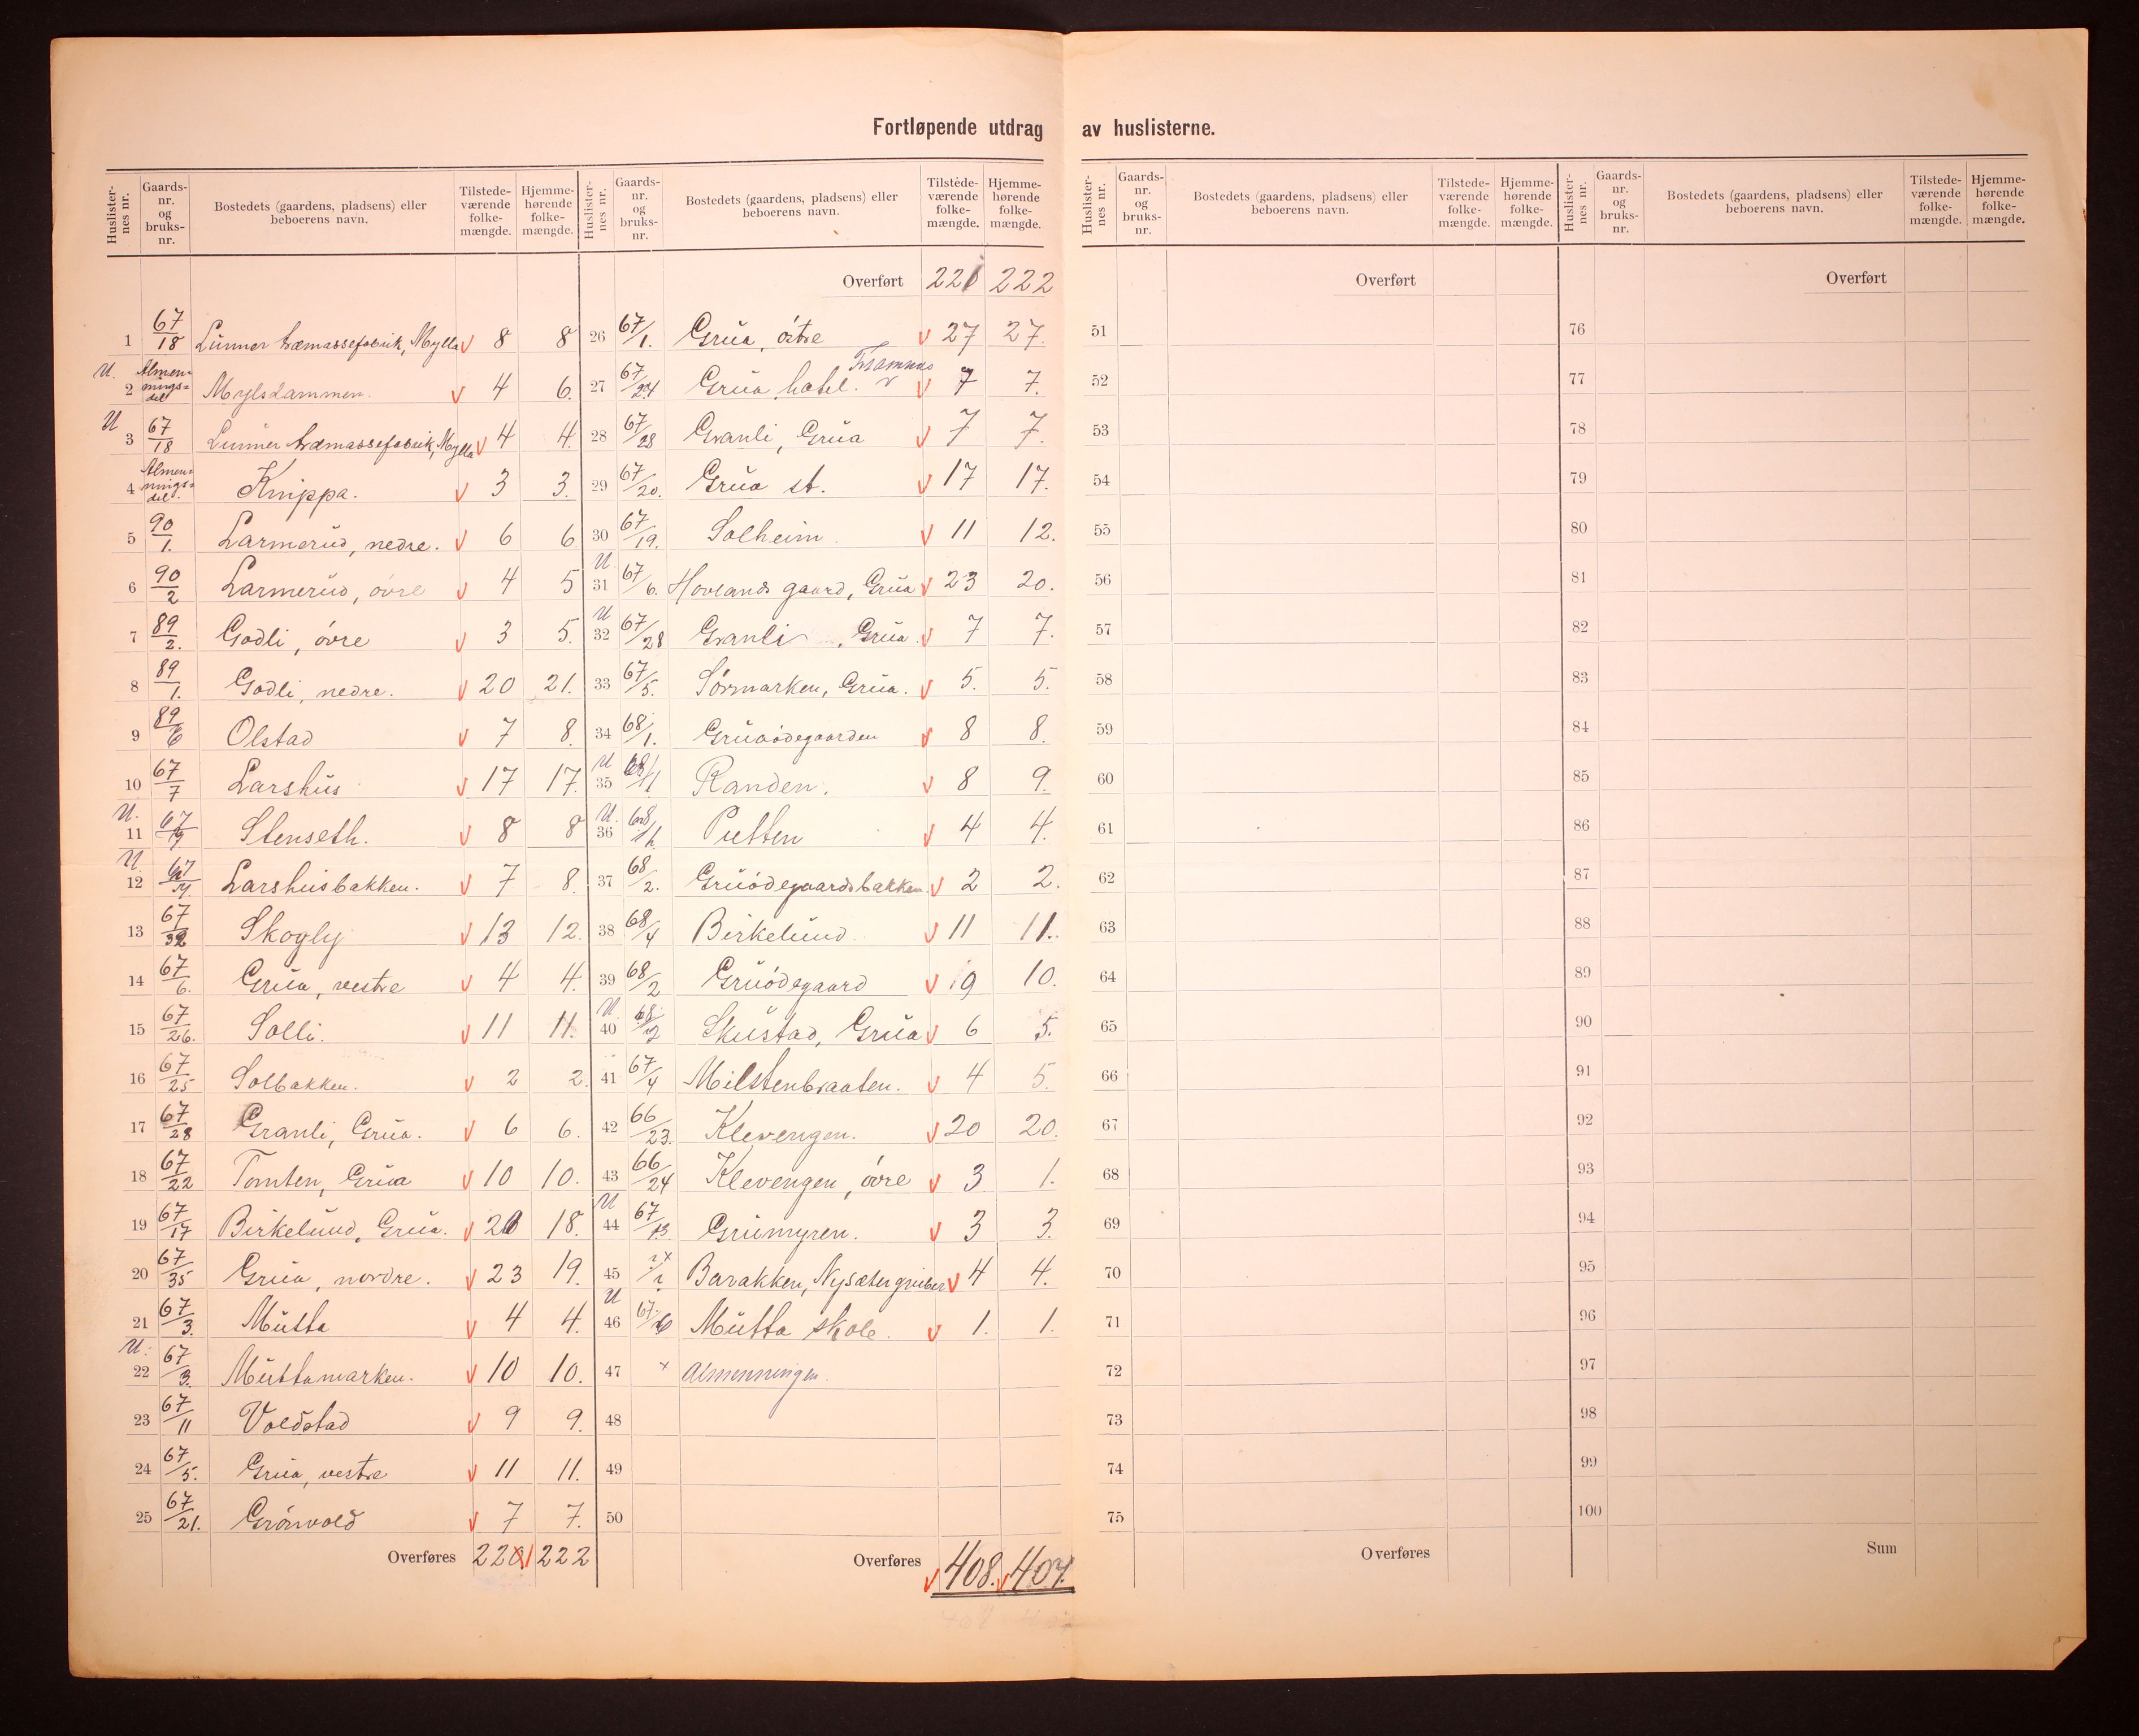 Fortløpende utdrag av huslisterne.
Huslisternes nr. Gaardsnr. og bruksnr. Bostedets (gaardens, pladsens) eller beboerens navn. Tilstedeværende folkemængde. Hjemmehørende folkemængde.
1 67/18 Lunner træmassefabrik, Mylla v 8 8
U. 2 Almenningsdel Mylsdammen. v 4 6.
U 3 67/18 Lunner træmassefabrik, Mylla v 4 4.
4 Almenningsdel. Knippa. v 3 3.
5 90/1. Larmerud, nedre. v 6 6
6 90/2 Larmerud, øvre v 4 5
7 89/2. Godli, øvre v 3 5.
8 89/1. Godli, nedre. v 20 21.
9 89/6 Olstad v 7 8.
10 67/7 Larshus v 17 17.
U. 11 67/19 Stenseth. v 8 8
U. 12 67/ Larshusbakken. v 7 8.
13 67/32 Skogly v 13 12.
14 67/6. Grua, vestre v 4 4.
15 67/26. Solli. v 11 11.
16 67/25 Solbakken. v 2 2.
17 67/28 Granli, Grua. v 6 6.
18 67/22 Tomten, Grua v 10 10.
19 67/17 Birkelund, Grua. v 20 18.
20 67/35 Grua, nordre. v 23 19.
21 67/3. Mutta v 4 4.
U. 22 67/3. Muttamarken. v 10 10.
23 67/11 Voldstad v 9 9.
24 67/5. Grua, vestre v 11 11.
25 67/21. Grønvold v 7 7.
Overføres 221 222
Huslisternes nr. Gaardsnr. og bruksnr. Bostedets (gaardens, pladsens) eller beboerens navn. Tilstedeværende folkemængde. Hjemmehørende folkemængde.
Overført 221 222
26 67/1. Grua, østre v 27 27.
Framnes v
27 67/24 Grua hotel. v 7 7.
28 67/28 Granli, Grua v 7 7.
29 67/20. Grua st. v 17 17.
30 67/19. Solheim v 11 12.
U 31 67/6. Hovlands gaard, Grua v 23 20.
U 32 67/28 Granli, Grua. v 7 7.
33 67/5. Sørmarken, Grua. v 5. 5.
34 68/1. Gruaødegaarden v 8 8.
U 35 68/1 Randen. v 8 9.
U. 36 68/1. Putten v 4 4.
37 68/2. Gruødegaardsbakken. v 2 2.
38 68/4 Birkelund v 11 11.
39 68/2 Gruødegaard v 9 10.
U. 40 68/2 Skustad, Grua v 6 5.
41 67/4 Milstenbraaten. v 4 5.
42 66/23. Klevengen. v 20 20.
43 66/24 Klevengen, øvre v 3 1.
U 44 67/13 Gruemyren. v 3 3.
45 Barakken, Nysæter gruber v 4 4.
U 46 67/6 Mutta skole. v 1. 1.
47 x Almenningen.
48
49
50
Overføres v 408. v 407.
Huslisternes nr. Gaardsnr. og bruksnr. Bostedets (gaardens, pladsens) eller beboerens navn. Tilstedeværende folkemængde. Hjemmehørende folkemængde.
Overført
51
52
53
54
55
56
57
58
59
60
61
62
63
64
65
66
67
68
69
70
71
72
73
74
75
Overføres
Huslisternes nr. Gaardsnr. og bruksnr. Bostedets (gaardens, pladsens) eller beboerens navn. Tilstedeværende folkemængde. Hjemmehørende folkemængde.
Overført
76
77
78
79
80
81
82
83
84
85
86
87
88
89
90
91
92
93
94
95
96
97
98
99
100
Sum